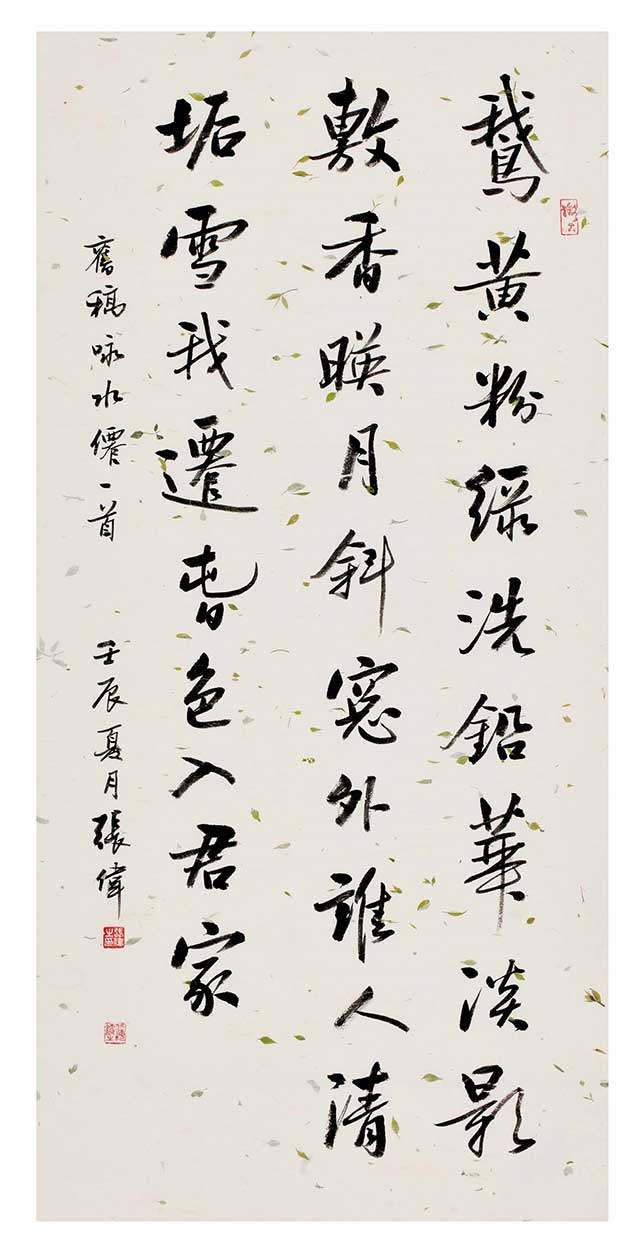 鵞黃粉綠洗鉛華淡影
敷香暎月斜窓外誰人清
垢雪我遷旾色入君家
舊稿咏水僊一首 壬辰夏月張偉